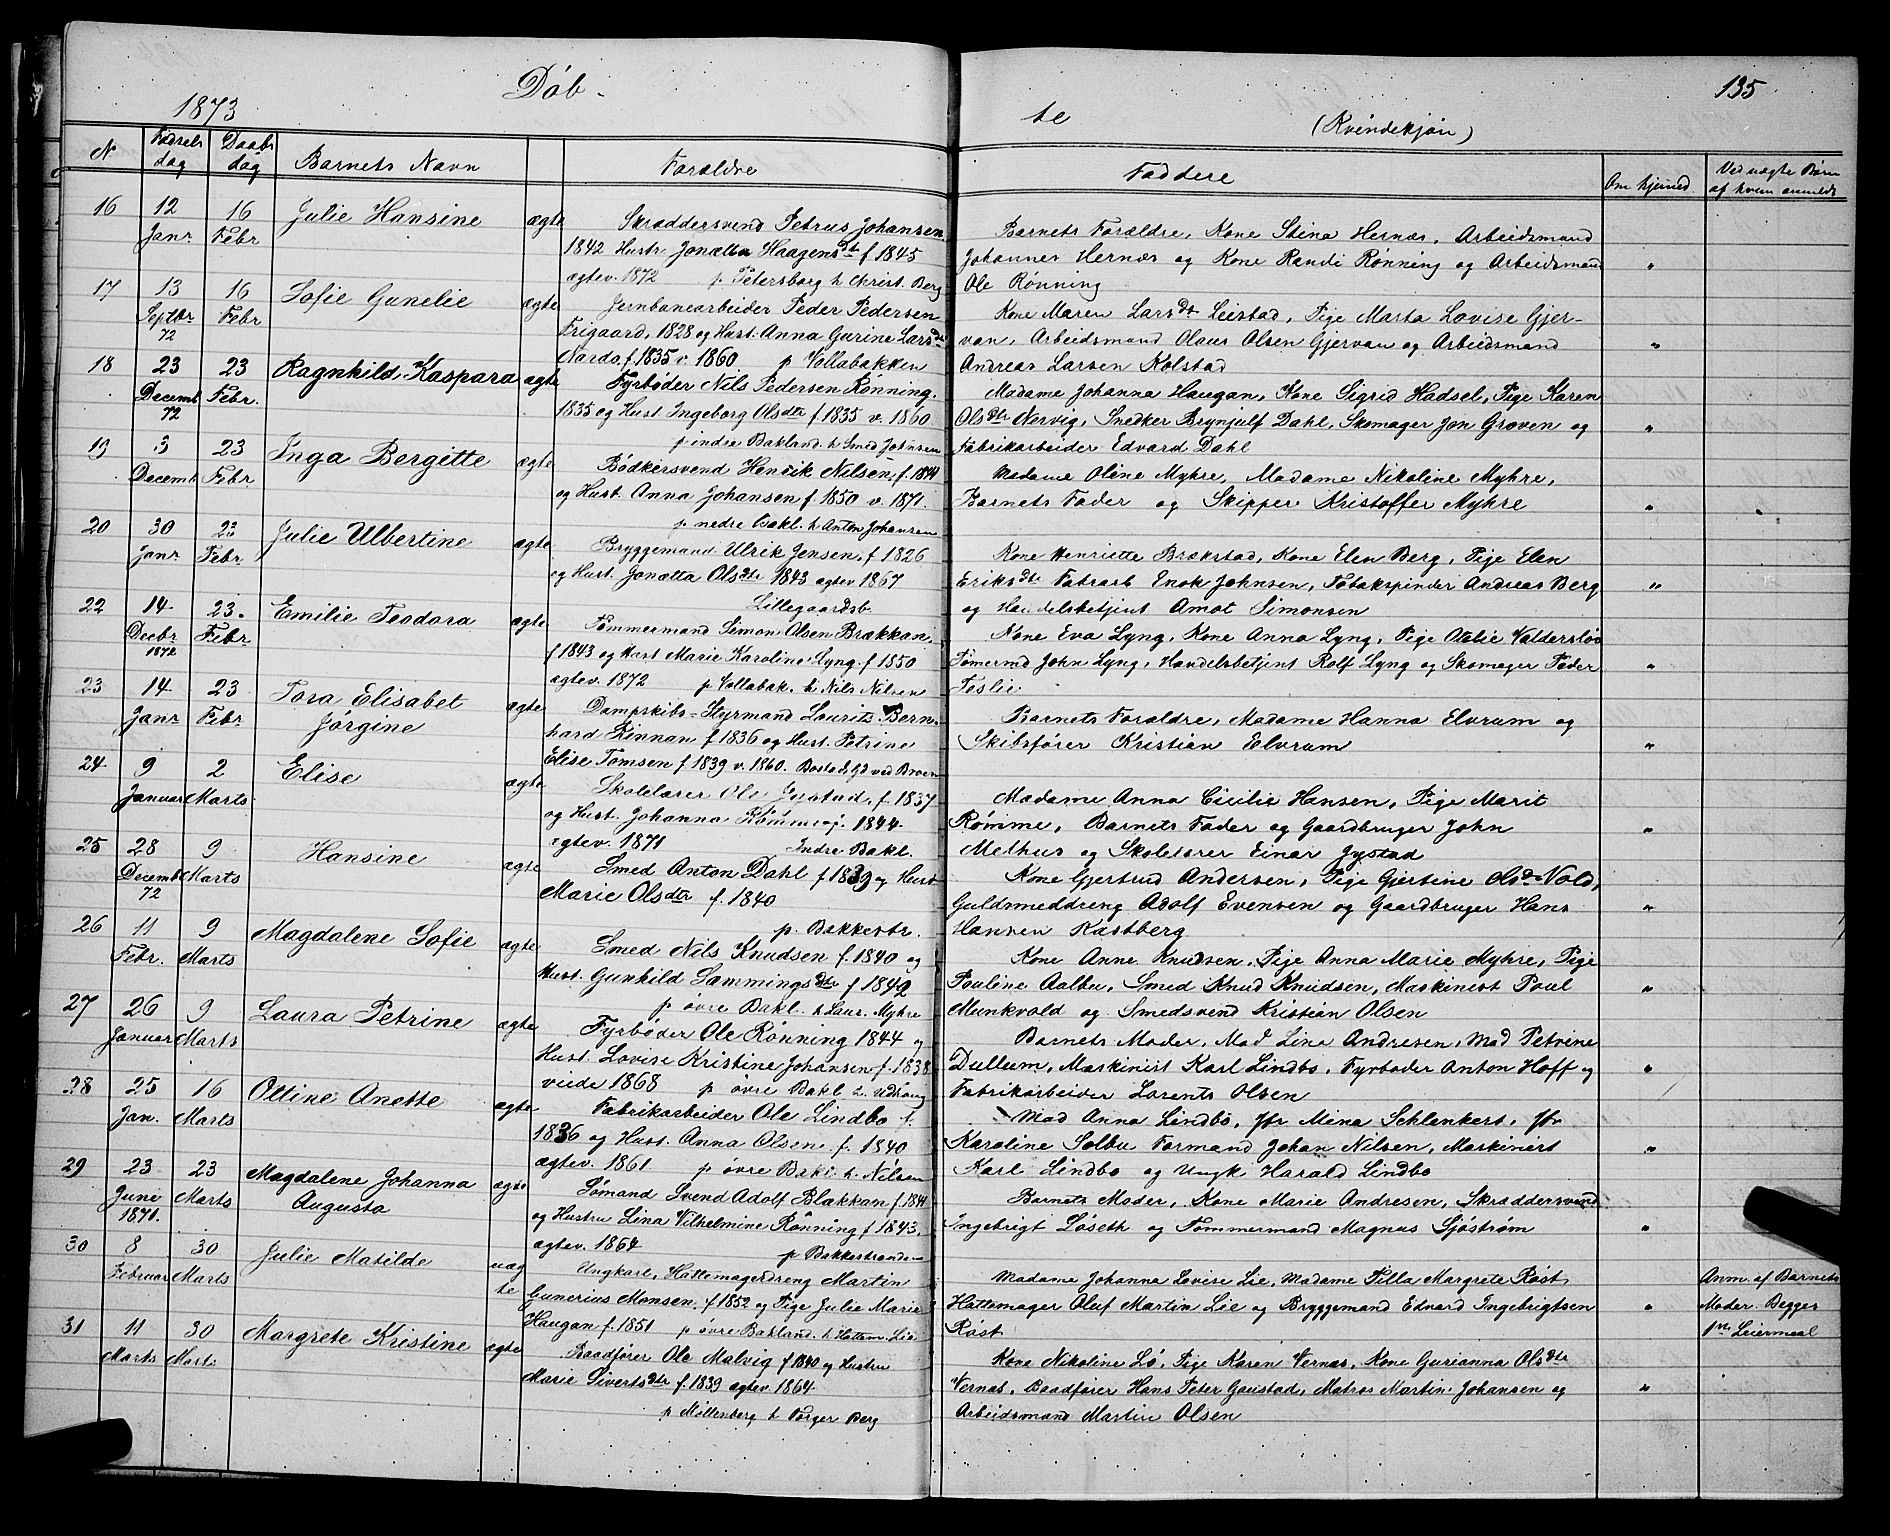 1873 Döb- te (Kvindekjön) 135
N Födsels dag Daabs dag Barnets Navn Forældre Faddere Om hjemmd. Ved uægte Börn af hvem anmeldt
16 12 Janr 16 Febr Julie Hansine ægte
Skræddersvend Petrus Johansen
1842 Hustr. Jonætta Haagensdt f 1845
ægtev. 1872 p Petersborg h Christ. Berg
Barnets Forældre, Kone Stina Hernæs, Arbeidsmand
Johannes Hernæs og Kone Randi Rønning og Arbeidsmand
Ole Rønning
17 13 Septbr 72 16 Febr Sofie Gunelie ægte
Jernbanearbeider Peder Pedersen
Frigaard, 1828 og Hust. Anna Gurine Larsdtr
f. 1835 v. 1860 p Vollabakken
Kone Maren Larsdtr Leistad, Pige Marta Lovise Gjer-
van, Arbeidsmand Olaus Olsen Gjervan og Arbeidsmand
Andreas Larsen Kolstad
18 23 Decemb 72 23 Febr. Ragnhild Kaspara ægte
Fyrbøder Nils Pedersen Rønning.
1835 og Hust. Ingeborg Olsdtr f 1835 v. 1860
p indre Bakland h Smed Johnsen
Madame Johanna Haugan, Kone Sigrid Hadsel, Pige Karen
Olsdtr Nervig, Snedker Brynjulf Dahl, Skomager Jon Groven og
Fabrikarbeider Edvard Dahl
19 3 Decemb 23 Febr. Inga Bergitte ægte
Bödkersvend Henrik Nilsen, f. 1844
og Hust. Anna Johansen f 1850 v. 1871.
p nedre Bakl. h Anton Johansen
Madame Oline Myhre, Madame Nikoline Myhre,
Barnets Fader og Skipper Kristoffer Myhre
20 30 Janr 23 Febr. Julie Ulbertine ægte
Bryggemand Ulrik Jensen, f 1826
og Hust. Jonætta Olsdtr 1843 ægtev 1867
Lillegaardsb.
Kone Henriette Brækstad, Kone Elen Berg, Pige Elen
Eriksdtr Fabrarb Enok Johnsen, Tobakspinder Andreas Berg
og Handelsbetjent Amot Simonsen
22 14 Decbr 1872 23. Febr. Emilie Teodora ægte
Tømmermand Simon Olsen Brækkan.
f 1843 og Hust Marie Karoline Lyng. f 1850
ægtev. 1872 p Vollabak. h Nils Nilsen
Kone Eva Lyng, Kone Anna Lyng, Pige Otelie Valdersløv
Tømermd John Lyng, Handelsbetjent Rolf Lyng og Skomager Peder
Teslie
23 14 Janr 23 Febr Tora Elisabet Jörgine ægte
Dampskibs-Styrmand Laurits Bern-
hard Finnan f 1836 og Hust. Petrine
Elise Tomsen f 1839 v. 1860. Bosted ved Broen
Barnets Forældre, Madame Hanna Elvrum og
Skibsfører Kristian Elvrum
24 9 Januar 2 Marts Elise ægte
Skolelærer Ole Jystad, f. 1837
og Hust. Johanna Rømme f. 1844
ægtev. 1871 Indre Bakl.
Madame Anna Cicilie Hansen, Pige Marit
Rømme, Barnets Fader og Gaardbruger John
Melhus og Skolelærer Einar Jystad
25 28 Decemb 72 9 Marts Hansine ægte
Smed Anton Dahl f 1839 og Hust
Marie Olsdtr f. 1840
p. Bakkestr.
Kone Gjertrud Andersen, Pige Gjertine Olsdr Vold,
Guldsmeddreng Adolf Evensen og Gaardbruger Hans
Hansen Kastberg
26 11 Febr. 9 Marts Magdalene Sofie ægte
Smed Nils Knudsen f. 1840 og
Hust. Gunhild Sammingsdtr f 1842
p övre Bakl. h Laur. Myhre
Kone Anne Knudsen, Pige Anna Marie Myhre, Pige
Pauline Aalbu, Smed Knud Knudsen, Maskinist Poul
Munkvold og Smedsvend Kristian Olsen
27 26 Januar 9 Marts Laura Petrine ægte
Fyrbøder Ole Rønning 1844 og
Hust. Lovise Kristine Johansen f. 1838
viede 1868 p övre Bakl h. Udhaug
Barnets Moder, Mad Lina Andresen, Mad Petrine
Dullum, Maskinist Karl Lindbo, Fyrbøder Anton Hoff og
Fabrikarbeider Lorents Olsen
28 25 Jan. 16 Marts Ottine Anette ægte
Fabrikarbeider Ole Lindbo f.
1836 og Hust. Anna Olsen f. 1840
ægtev. 1861 p övre Bakl h. Nilsen
Mad Anna Lindbö, Jfr Mina Schlenkert, Jfr
Karoline Solbu Formand Johan Nilsen, Maskinist
Karl Lindbo og Ungk. Harald Lindbo
29 23 Juni 1871. 23 Marts Magdalene Johanna Augusta ægte
Sømand Svend Adolf Blakkan f. 1841
og Hustru Lina Vilhelmine Rønning f 1843.
ægtev. 1864 p Bakkestranden
Barnets Moder, Kone Marie Andresen, Skræddersvend
Ingebrigt Löseth og Tømmermand Magnus Sjöström
30 8 Februar 30 Marts Julie Matilde uægte
Ungkarl, Hattemagerdreng Martin
Gunerius Monsen, f. 1852 og Pige Julie Marie
Haugan f. 1851 p övre Bakland h Hattem. Lie
Madame Johanna Lovise Lie, Madame Pilla Margrete Røst
Hattemager Oluf Martin Lie og Bryggemand Edvard Ingebrigtsen
Røst
Anm. af Barnets
Moder. Begges
1ste Leiermaal
31 11 Marts 30 Marts Margrete Kristine ægte
Baadfører Ole Malvig f. 1840 og Hustru
Marie Sivertsdtr f. 1839 ægtev 1864
p Møllenberg h Torger Berg
Kone Nikoline Lö, Pige Karen Vernæs, Kone Gurianna Olsdtr
Vernæs, Baadfører Hans Peter Gaustad, Matros Martin Johansen og
Arbeidsmand Martin Olsen